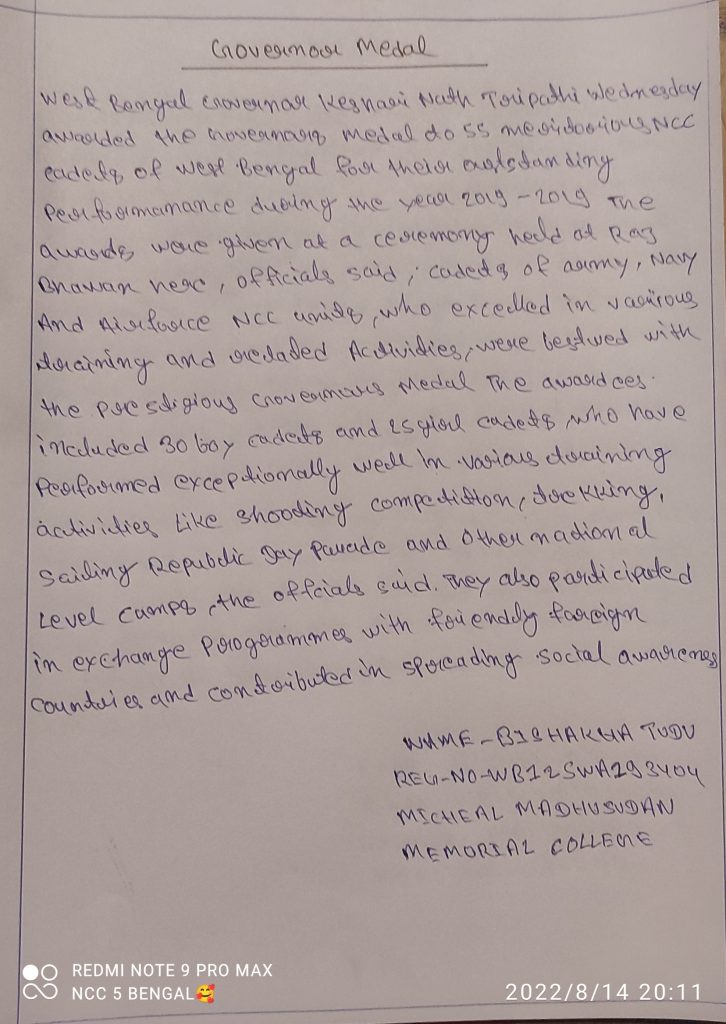 Governor Medal
West Bengal Governor Keshari Nath Tripathi Wednesday
awarded the Governors Medal to 55 meritorious NCC
cadets of west Bengal for their outstanding
Performamance during the year 2019 - 2019 The
awards were given at a ceremony held at Raj
Bhawan here, officials said, cadets of army, Navy
And Airforce NCC units, who excelled in various
training and related Activities, were bestwed with
the prestigious Governors Medal The awardees.
included 30 boy cadets and 25 girl cadets, who have
Performed exceptionally well in various training
activities like shooting competition, trekking,
Sailing Republic Day Parade and other national
Level camps, the offcials said. They also participated
in exchange Programmes with friendly foreign
countries and contributed in spreading social awareness
NAME - BISHAKHA TUDU
REG-NO-WB12SWA293404
MICHEAL MADHUSUDAN
MEMORIAL COLLEGE
REDMI NOTE 9 PRO MAX
NCC 5 BENGAL🥰
2022/8/14 20:11